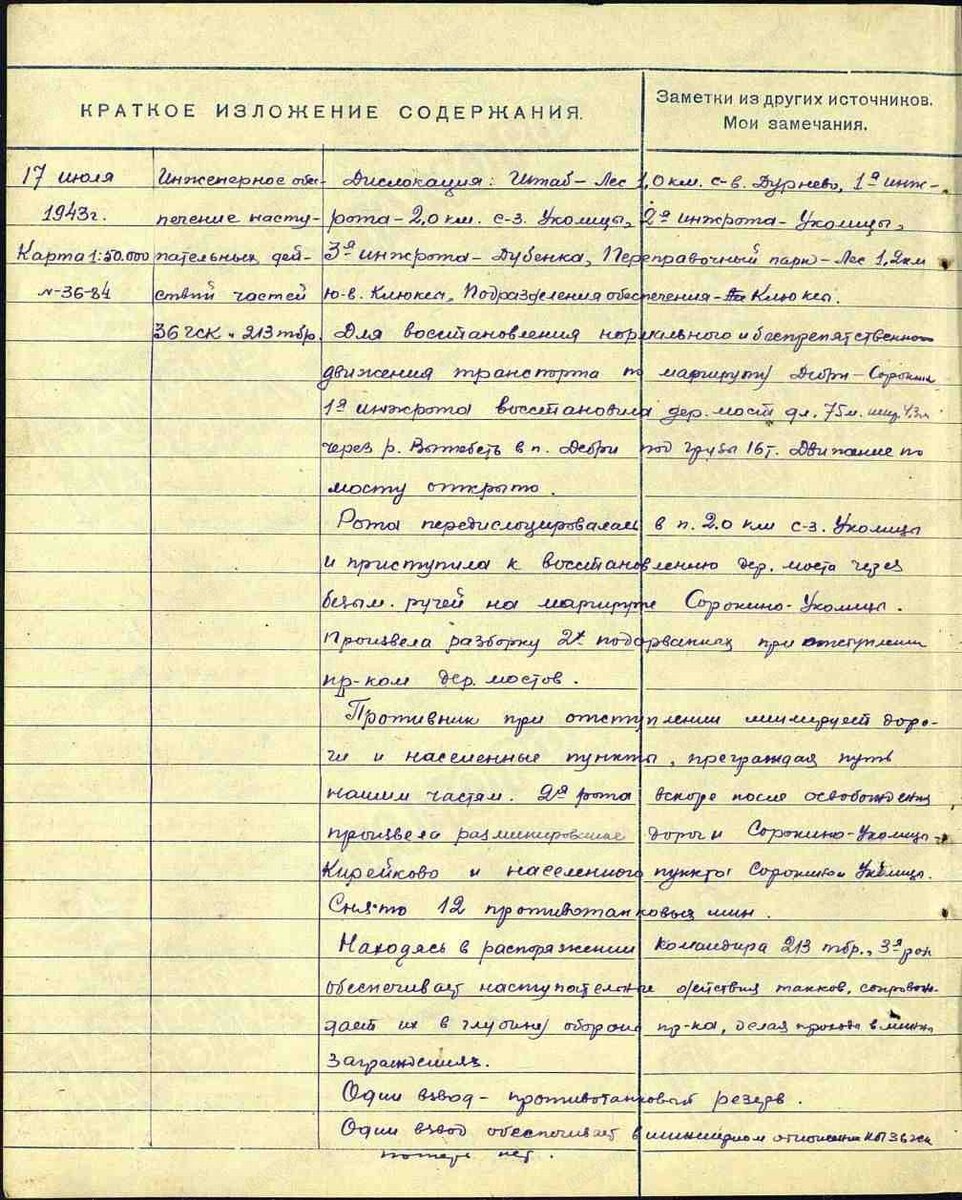 КРАТКОЕ ИЗЛОЖЕНИЕ СОДЕРЖАНИЯ.
Заметки из других источников.
Мои замечания.
17 июля
1943г.
Карта 1:50.000
N-36-84
Инженерное обес-
печение насту-
пательных дей-
ствий частей
36 гск и 213 тбр.
Дислокация: Штаб – Лес 1,0 км. с-в. Дурнево, 1ª инж-
рота – 2,0 км. с-з. Уколицы, 2ª инжрота – Уколицы,
3ª инжрота – Дубенка, Переправочный парк – Лес 1,2 км
ю-в. Клюксы, Подразделения обеспечения – Клюксы.
Для восстановления нормального и беспрепятственного
движения транспорта по маршруту Дебри – Сорокино
1ª инжрота восстановила дер. мост дл. 75 м. шир. 4,3 м
через р. Вытебеть в п. Дебри под грузы 16 т. Движение по
мосту открыто.
Рота передислоцировалась в п. 2.0 км с-з. Уколицы
и приступила к восстановлению дер. моста через
безым. ручей на маршруте Сорокино – Уколицы.
Произвела разборку 2х подорванных при отступлении
пр-ком дер. мостов.
Противник при отступлении минирует доро-
ги и населенные пункты, преграждая путь
нашим частям. 2ª рота вскоре после освобождения
произвела разминирование дороги Сорокино – Уколицы –
Кирейково и населенного пункта Сорокино и Уколицы.
Снято 12 противотанковых мин.
Находясь в распоряжении командира 213 тбр., 3ª рота
обеспечивает наступательные действия танков, сопровож-
дает их в глубине обороны пр-ка, делая проходы в минных
заграждениях.
Один взвод – противотанковый резерв.
Один взвод обеспечивает в инженерном отношении
потерь нет.